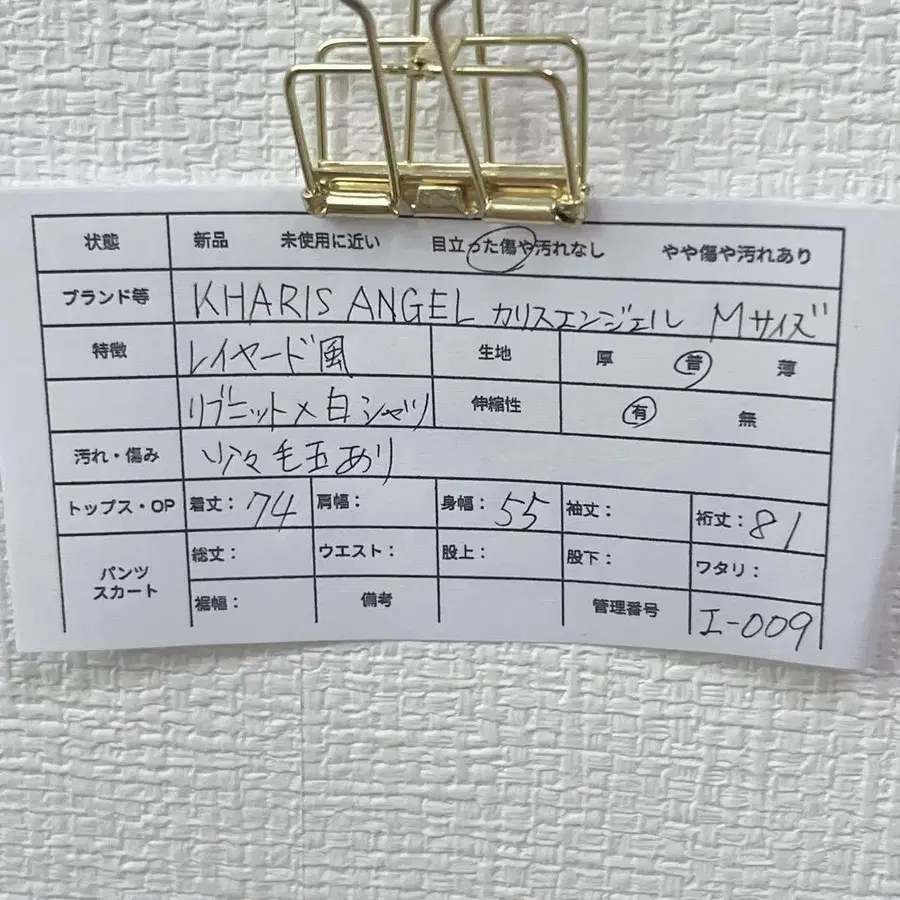 状態 新品 未使用に近い 目立った傷や汚れなし やや傷や汚れあり
ブランド等 KHARIS ANGEL カリスエンジェル Mサイズ
特徴 レイヤード風 生地 厚 普 薄
リブニット×白シャツ 伸縮性 有 無
汚れ・傷み 少々毛玉あり
トップス・OP 着丈: 74 肩幅: 身幅: 55 袖丈: 裄丈: 81
パンツ スカート 総丈: ウエスト: 股上: 股下: ワタリ:
裾幅: 備考 管理番号 I-009